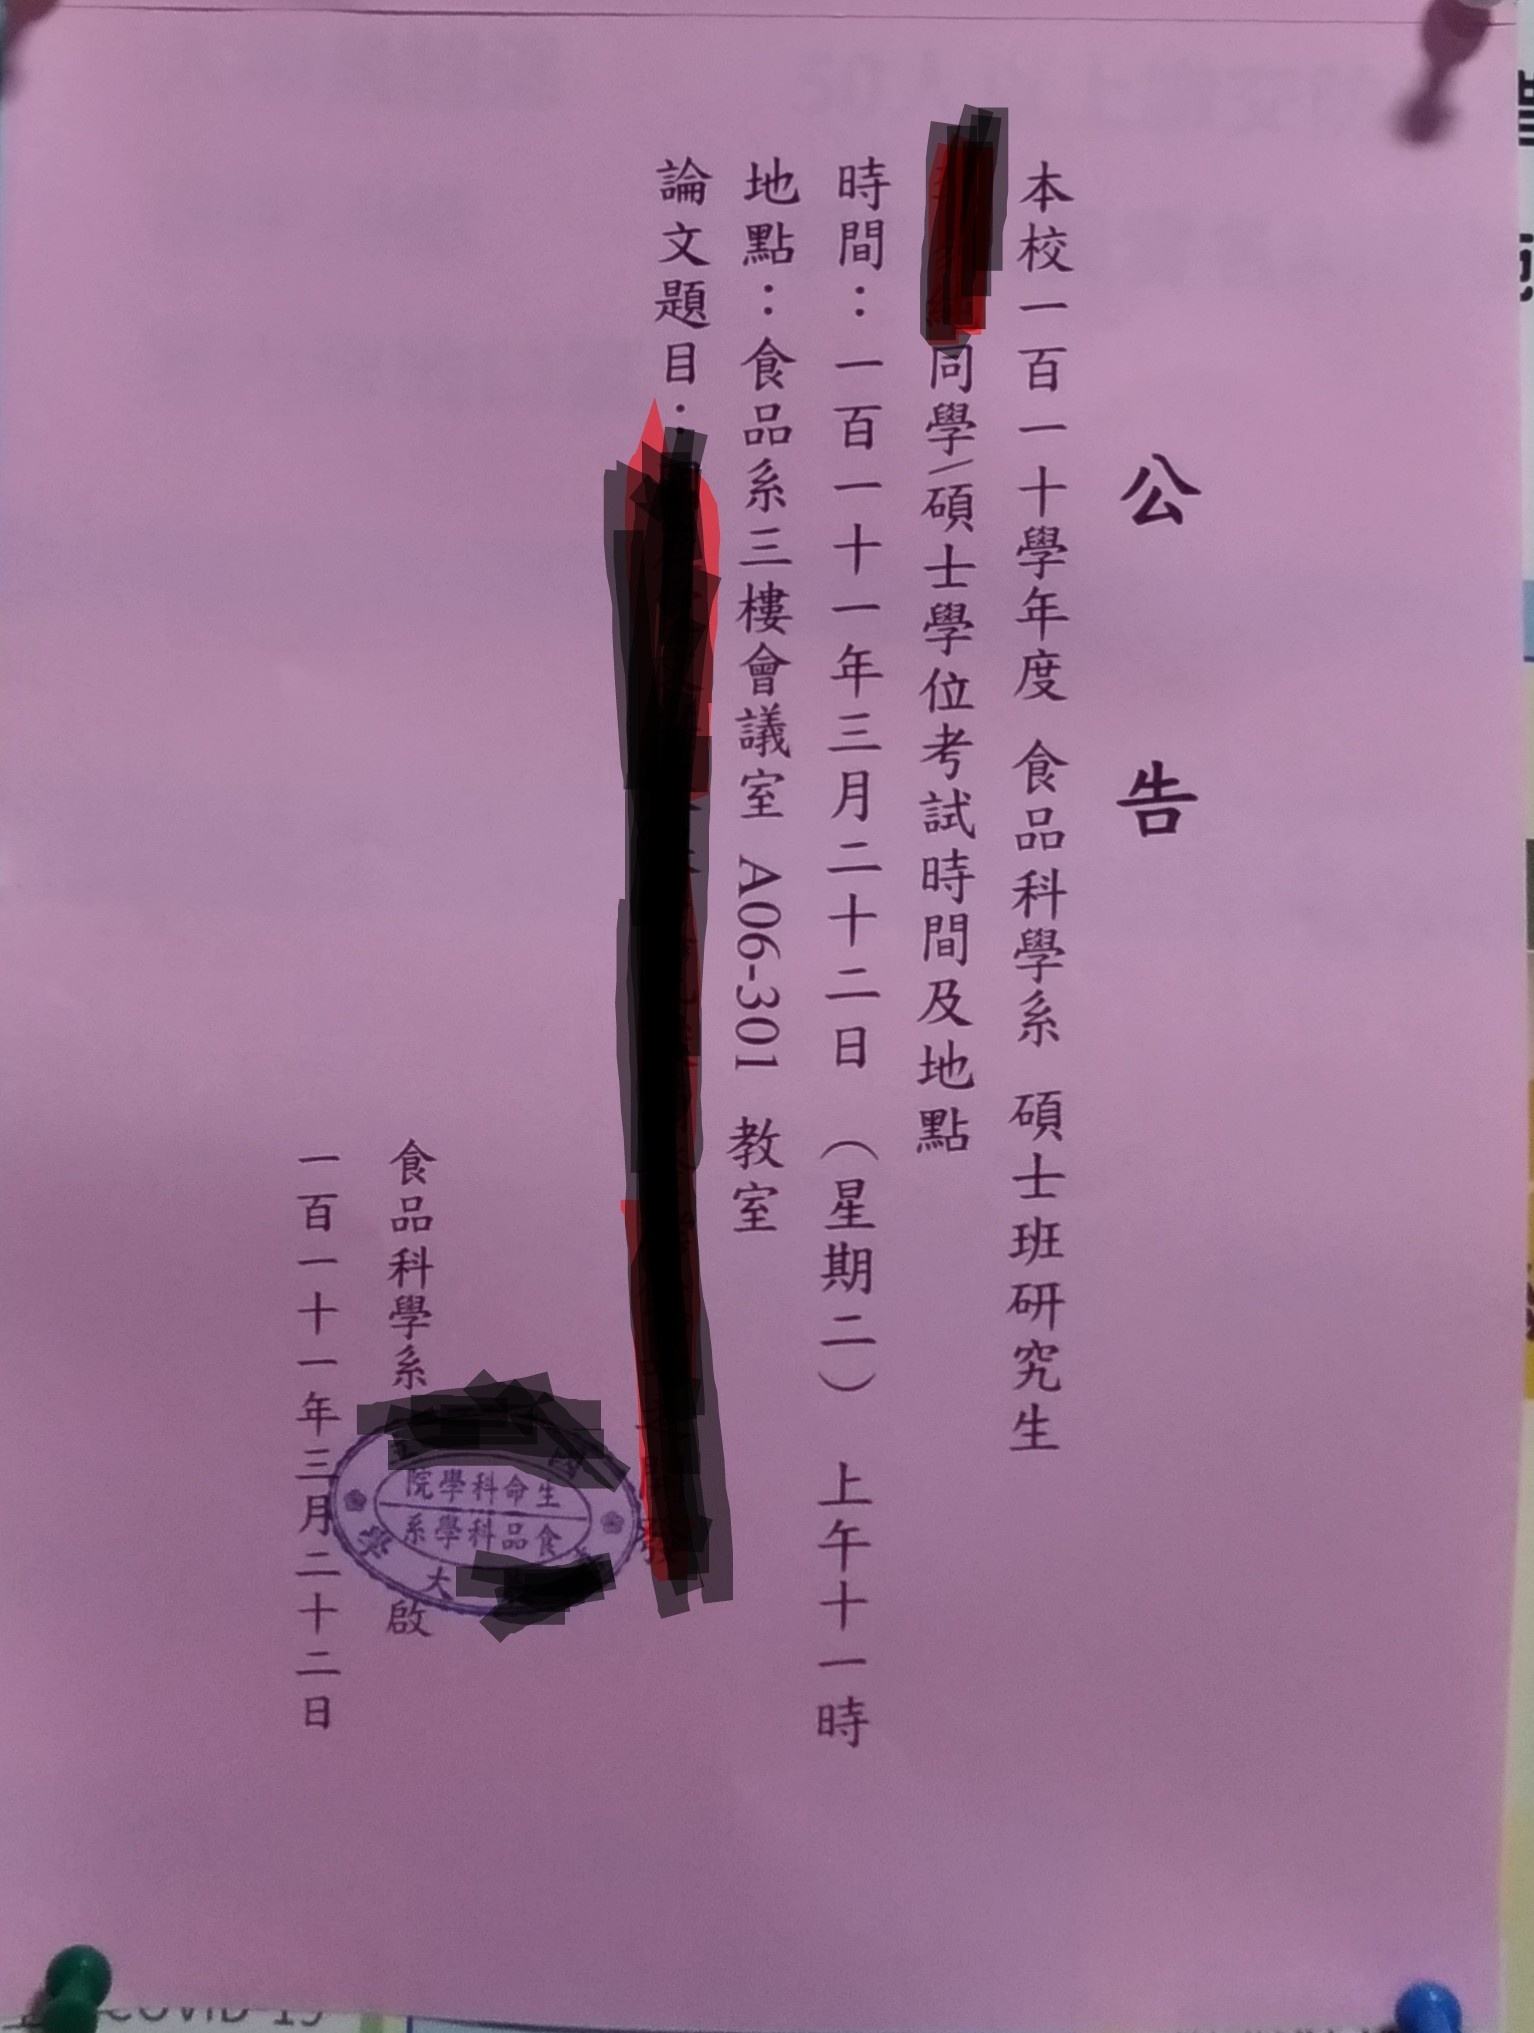 公告
本校一百一十學年度 食品科學系 碩士班研究生
同學/碩士學位考試時間及地點
時間：一百一十一年三月二十二日（星期二） 上午十一時
地點：食品系三樓會議室 A06-301 教室
論文題目：
食品科學系 啟
一百一十一年三月二十二日
生命科學院
食品科學系
大
COVID-19